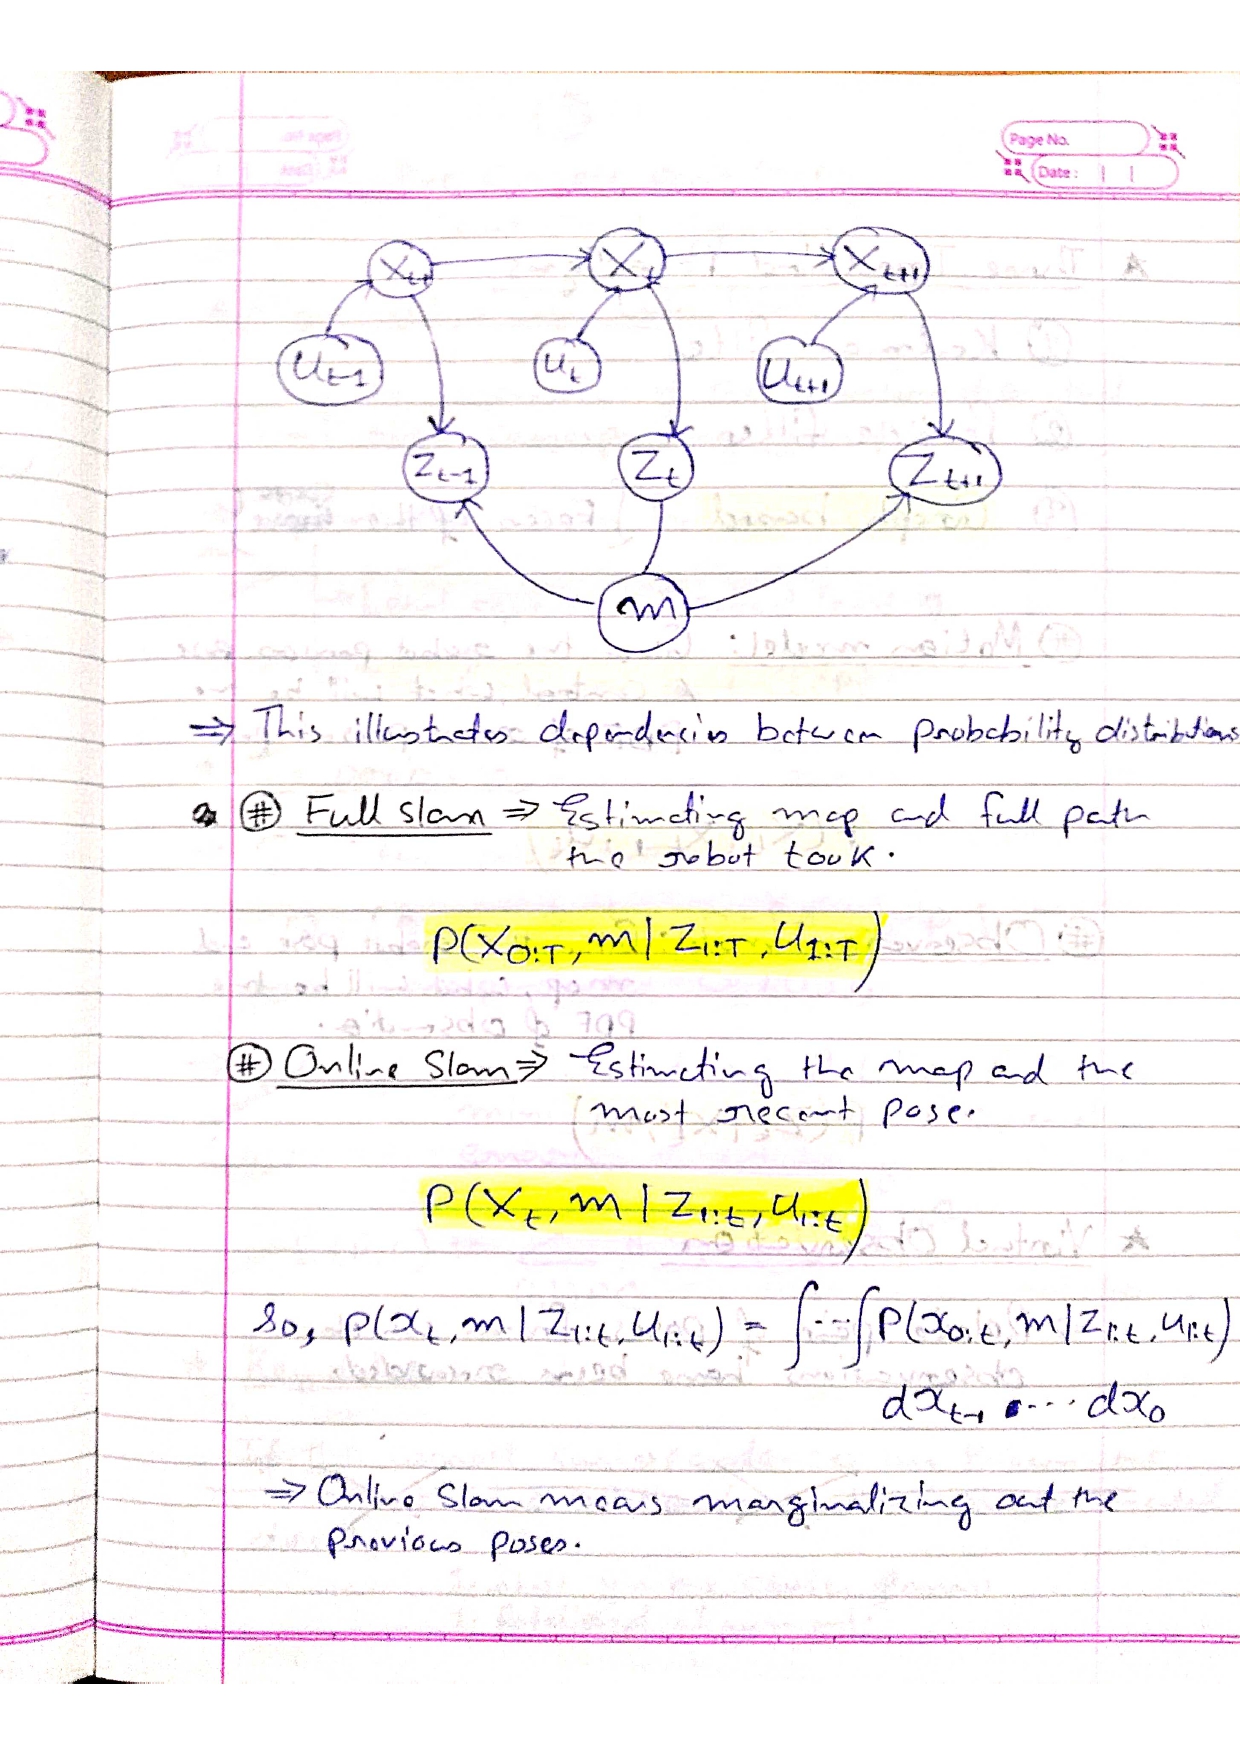 Page No.
Date :
X_t-1 X_t X_t+1
U_t-1 U_t U_t+1
Z_t-1 Z_t Z_t+1
m
⇒ This illustrates dependencies between probability distributions
# Full Slam ⇒ Estimating map and full path
the robot took.
P(X_0:T, m | Z_1:T, U_1:T)
# Online Slam ⇒ Estimating the map and the
most recent pose.
P(X_t, m | Z_1:t, U_1:t)
So, P(x_t, m | Z_1:t, U_1:t) = ∫...∫ P(x_0:t, m | Z_1:t, U_1:t)
dx_t-1 .... dx_0
⇒ Online Slam means marginalizing out the
previous poses.